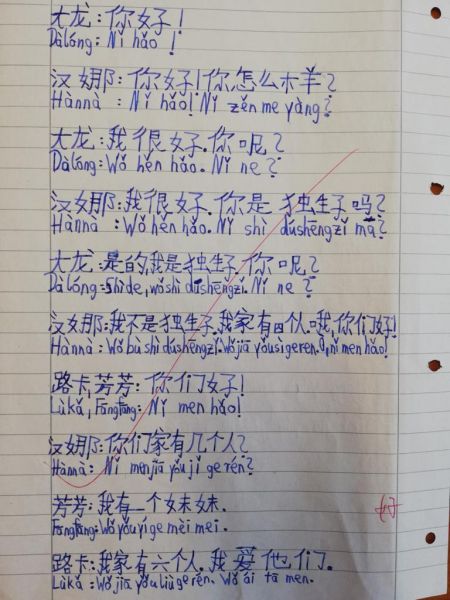 大龙:你好!
Dàlóng: Nǐ hǎo !
汉娜:你好!你怎么样?
Hànnà : Nǐ hǎo! Nǐ zěn me yàng?
大龙:我很好.你呢?
Dàlóng: Wǒ hěn hǎo. Nǐ ne ?
汉娜:我很好.你是 独生子吗?
Hànnà : Wǒ hěn hǎo. Nǐ shì dúshēngzǐ mā?
大龙:是的,我是独生子.你呢?
Dàlóng: Shìde, wǒshì dúshēngzǐ. Nǐ ne ?
汉娜:我不是独生子.我家有四个人.哦,你们好!
Hànnà: Wǒ bú shì dúshēngzǐ. Wǒjiā yǒusìgeren. O, nǐ men hǎo!
路卡,芳芳:你们好!
Lùkǎ, Fāngfāng: Nǐ men hǎo!
汉娜:你们家有几个人?
Hànnà: Nǐ menjiā yǒu jǐ ge rén?
芳芳:我有一个妹妹.
Fāngfāng: Wǒ yǒu yí ge mèi mei.
好
路卡:我家有六个人.我爱他们.
Lùkǎ : Wǒ jiā yǒu liù gerén. Wǒ ài tā men.